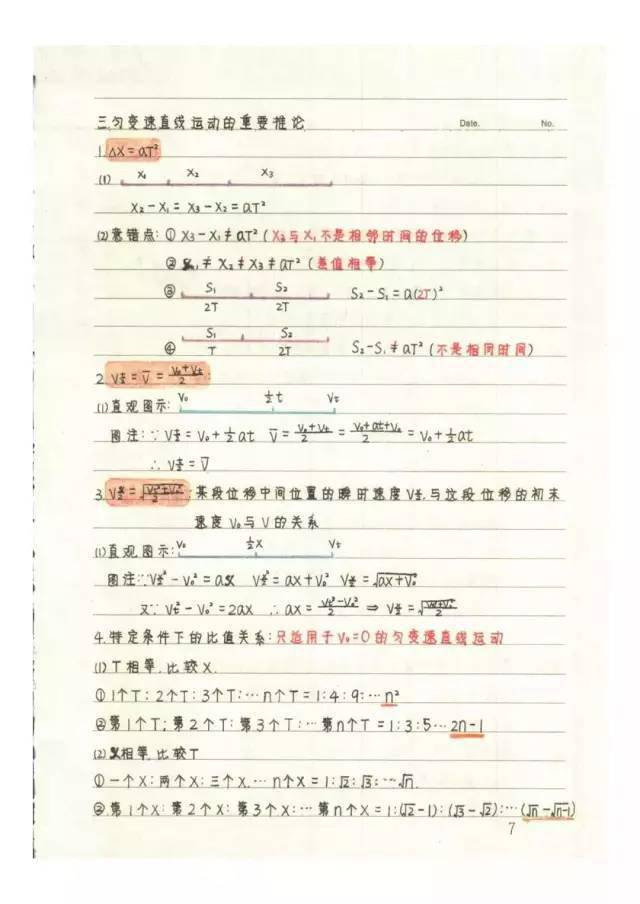 三.匀变速直线运动的重要推论
Date. No.
1. ΔX=aT²
(1) X₁ X₂ X₃
X₂-X₁=X₃-X₂=aT²
(2)意错点:①X₃-X₁≠aT²(X₃与X₁不是相邻时间的位移)
②X₁≠X₂≠X₃≠aT²(差值相等)
③ S₁ S₂ S₂-S₁=a(2T)²
2T 2T
④ S₁ S₂ S₂-S₁≠aT²(不是相同时间)
T 2T
2. V½=V̄=(V₀+Vt)/2:
(1)直观图示: V₀ ½t Vt
图注:∵V½=V₀+½at V̄=(V₀+Vt)/2=(V₀+at+V₀)/2=V₀+½at
∴V½=V̄
3. V½=√((Vt²+V₀²)/2):某段位移中间位置的瞬时速度V½,与这段位移的初末
速度V₀与V的关系
(1)直观图示: V₀ ½X Vt
图注:∵V½²-V₀²=ax V½²=ax+V₀² V½=√(ax+V₀²)
又∵Vt²-V₀²=2ax ∴ax=(Vt²-V₀²)/2 ⇒ V½=√((Vt²+V₀²)/2)
4.特定条件下的比值关系:只适用于V₀=0的匀变速直线运动
(1)T相等,比较X.
①1个T:2个T:3个T:⋯n个T=1:4:9:⋯n²
②第1个T:第2个T:第3个T:⋯第n个T=1:3:5⋯2n-1
(2)X相等,比较T
①一个X:两个X:三个X.⋯n个X=1:√2:√3:⋯√n.
②.第1个X:第2个X:第3个X:⋯第n个X=1:(√2-1):(√3-√2):⋯(√n-√n-1)
7